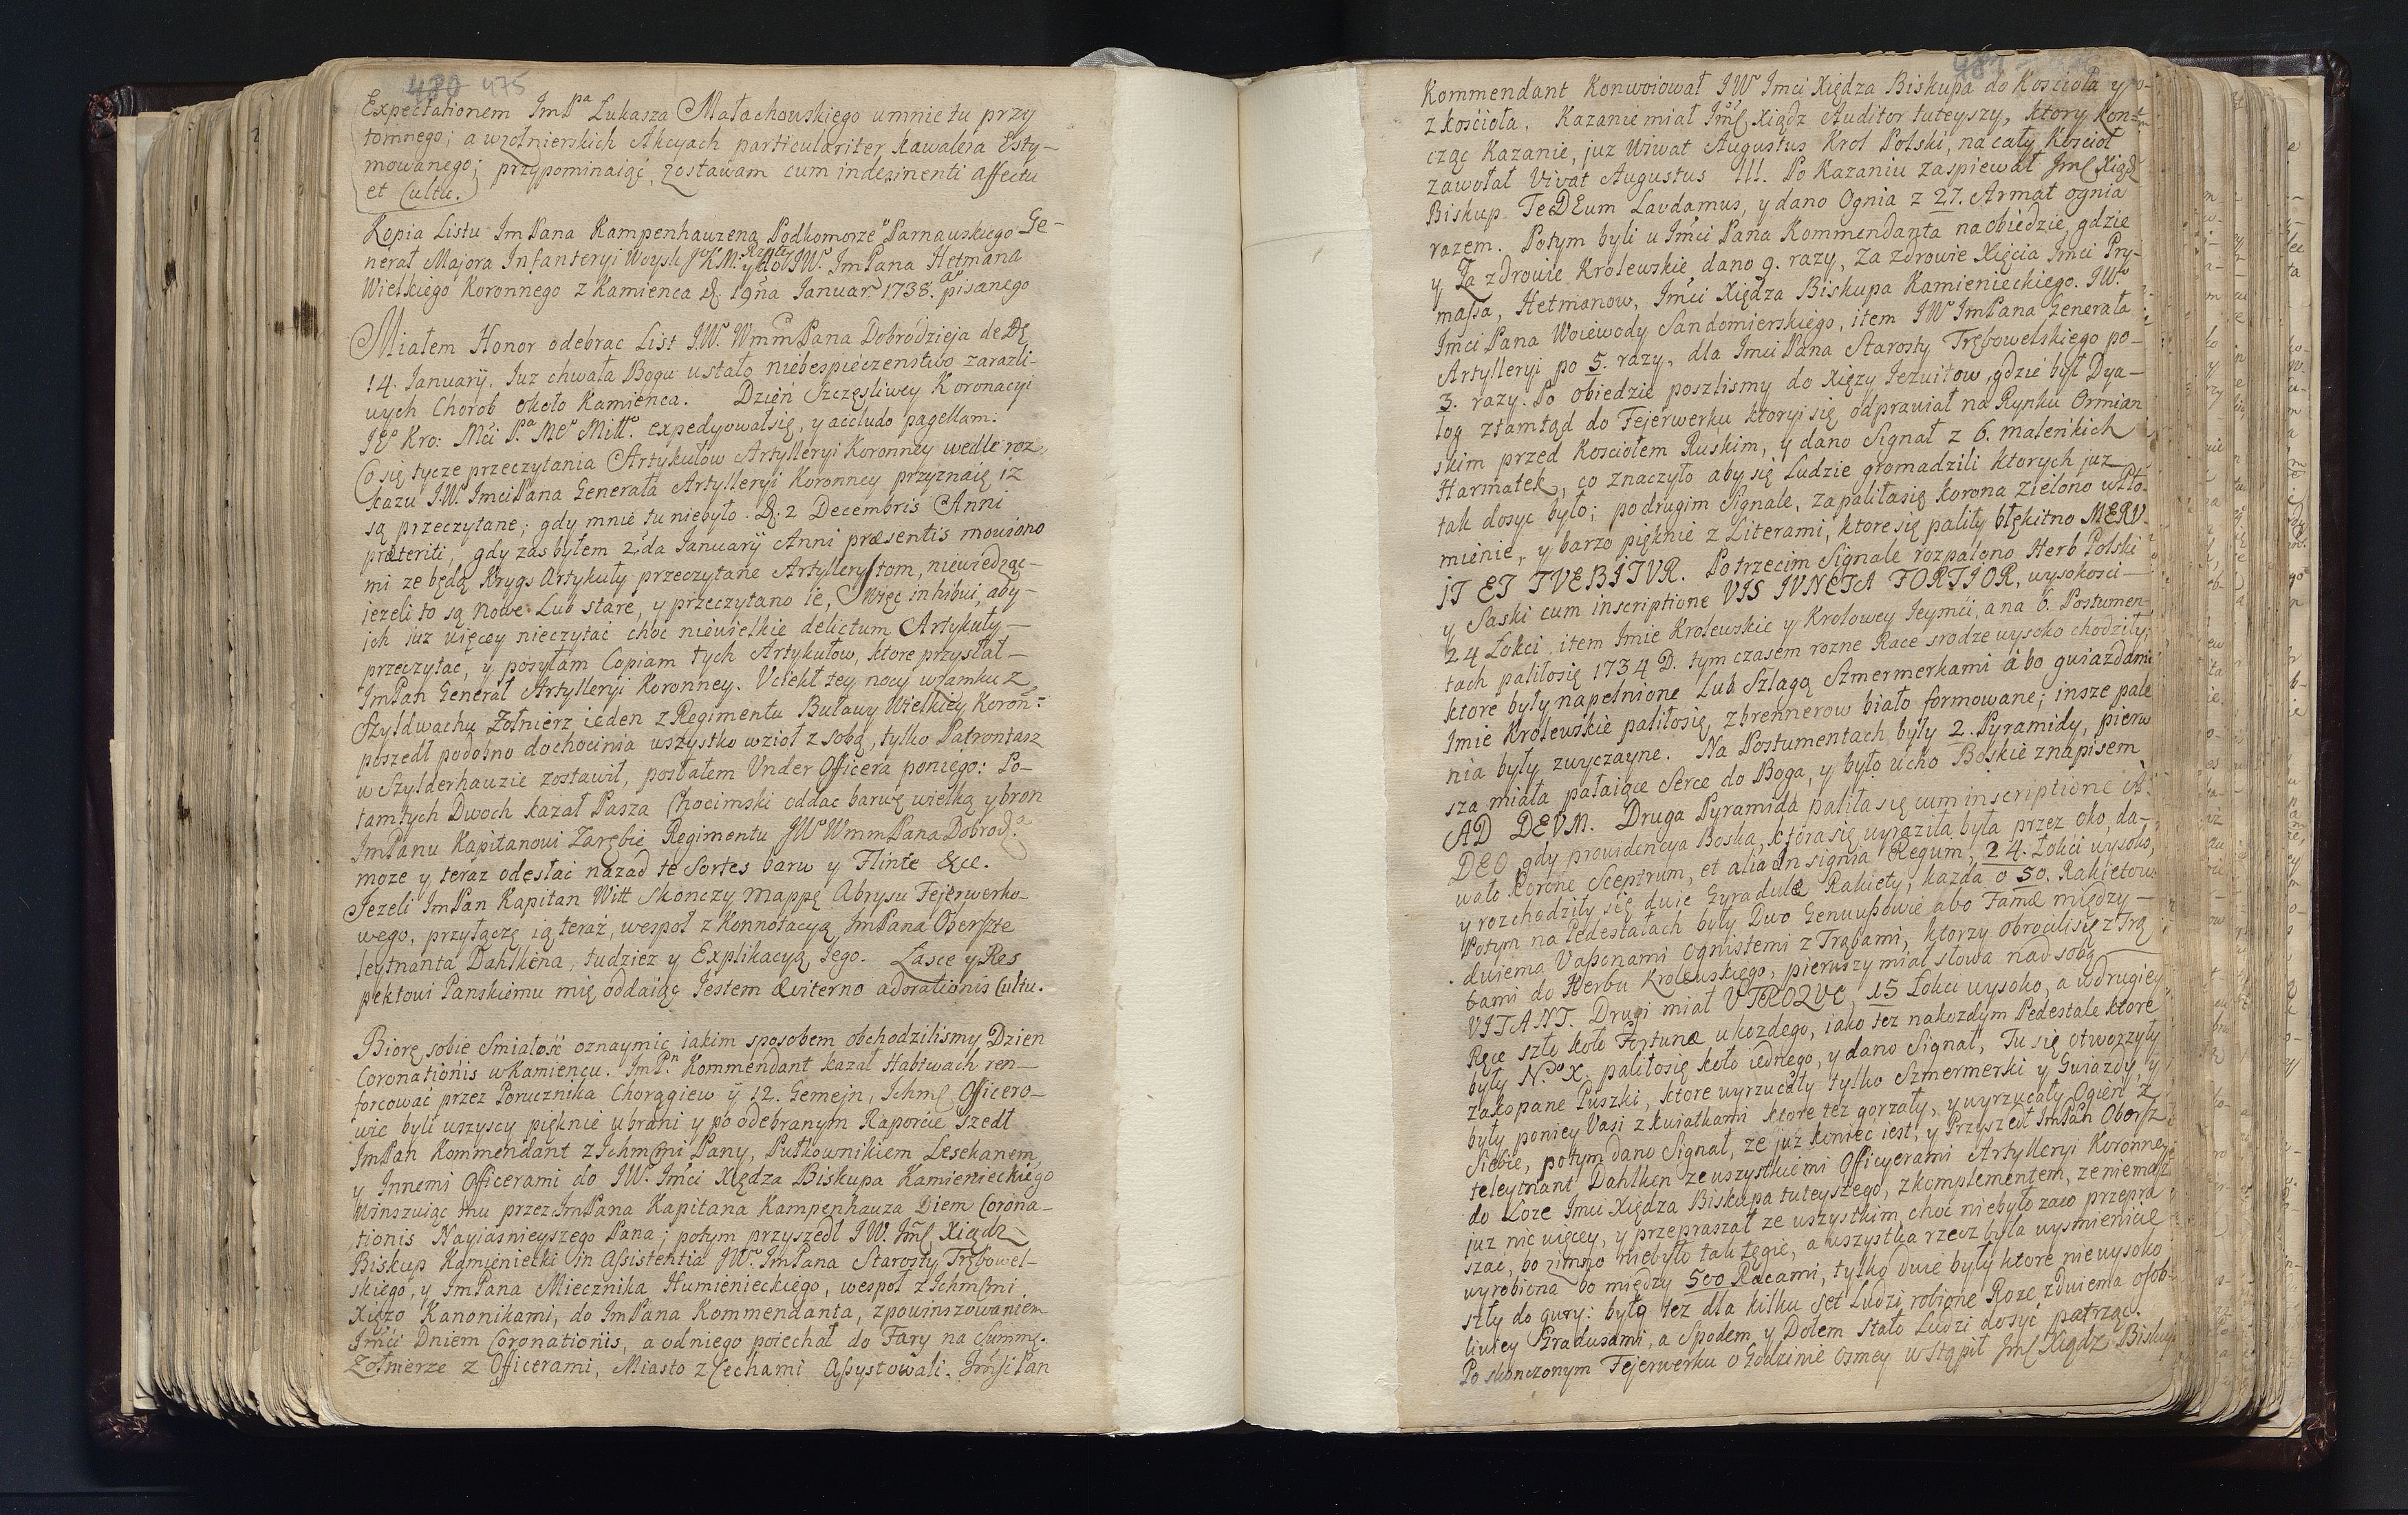 480 475
Expectationem ImPa Łukasza Małachowskiego u mnie tu przy
tomnego; a wżołnierskich Akcyach particulariter kawalera Esty-
mowanego; przypominaiąc, zostawam cum indesinenti affectu
et Cultu.
Kopia Listu Im Pana Kampenhauzena Podkomorze° Parnauskiego Ge-
nerał Majora Infanteryi Woysk JKM. y Rzptey do JW. ImPana Hetmana
Wielkiego Koronnego z Kamienca d. 19na Januar. 1738. pisanego
Miałem Honor odebrac List J.W. Wmm Pana Dobrodzieja de D.
14. Januarij. Juz chwała Bogu ustało niebespieczenstwo zarazli-
wych Chorob około Kamienca. Dzień Szczęsliwey Koronacyi
JEo Kro: Mći Pa Mo Mitto. expedyowałsię, y accludo pagellam.
Co się tycze przeczytania Artykułow Artylleryi Koronney wedle roz,
kazu J.W. Imci Pana Generała Artylleryi Koronney przyznaię iz
są przeczytane; gdy mnie tu niebyło. d. 2 Decembris Anni
præteriti, gdy zas byłem 2da Januarij Anni præsentis mowiono
mi ze będą Krygs Artykuły przeczytane Artyllerystom, niewiedząc-
jezeli to są nowe Lub stare, y przeczytano ie, Więc inhibui, aby-
ich juz więcey nieczytać choc niewielkie delictum Artykuły-
przeczytac, y posyłam Copiam tych Artykułow, ktore przysłał-
ImPan Generał Artylleryi Koronney. Uciekł tey nocy w zamku z
Szyldwachu Zołnierz ieden z Regimentu Buławy Wielkiey Koron:
poszedł podobno dochocimia wszystko wzioł z sobą, tylko Patrontasz
w Szylderhauzie zostawił, posłałem Under Officera poniego: Po-
tamtych Dwoch kazał Pasza Chocimski oddac barwę wielką y bron
ImPanu Kapitanowi Zarębie Regimentu JWo WmmPana Dobrod.a
moze y teraz odesłać nazad te Sortes barw y Flinte &ce.
Jezeli ImPan Kapitan Witt skonczy mappę Abrysu Fejerwerko-
wego, przyłączę ią teraz, wespoł z Konnotacyą ImPana Oberszte
leytnanta Dahlkena, tudziez y Explikacyą Jego. Łasce y Res
pektowi Panskiemu mię oddaiąc Jestem æviterno adorationis Cultu.
Biorę sobie Smiałość oznaymic iakim sposobem obchodzilismy Dzien
Coronationis w Kamiencu. ImPn Kommendant kazał Habtwach ren-
forcować przez Porucznika Chorągiew y 12. Gemejn, Ichmć Officero-
wie byli wszyscy pięknie ubrani y po odebranym Raporcie szedł
ImPan Kommendant z Ichmćmi Pany, Pułkownikiem Lesekanem,
y Innemi Officerami do JW. Imći Xiędza Biskupa Kamienieckiego
winszuiąc mu przez ImPana Kapitana Kampenhauza Diem Corona-
tionis Nayiasnieyszego Pana; potym przyszedł JW. Jmć Xiądz
Biskup Kamieniecki in assistentia JWo ImPana Starosty Trębowel-
skiego, y ImPana Miecznika Humienieckiego, wespoł z Ichmćmi
Xięzo Kanonikami, do ImPana Kommendanta, z powinszowaniem
Imći Dniem Coronationis, a odniego poiechał do Fary na Summę.
Zołnierze z Officerami, Miasto z Cechami assystowali. Jmći Pan
481
Kommendant Konwoiował JW Imći Xiędza Biskupa do Koscioła y
z kościoła. Kazanie miał Jmć Xiądz Auditor tuteyszy, ktory kon-
cząc Kazanie, juz Wiwat Augustus Krol Polski, na cały Kościoł
zawołał Vivat Augustus III. Po Kazaniu zaspiewał Jmć Xiądz
Biskup Te DEum Laudamus, y dano Ognia z 27. Armat ognia
razem. Potym byli u Imći Pana Kommendanta na obiedzie, gdzie
y Za zdrowie Krolewskie, dano 9. razy, Za zdrowie Xięcia Imći Pry-
massa, Hetmanow, Imći Xiędza Biskupa Kamienieckiego. JWo
Imći Pana Woiewody Sandomierskiego, item JW ImPana Generała
Artylleryi po 5. razy, dla Imći Pana Starosty Trębowelskiego po-
3. razy. Po obiedzie poszlismy do Xięzy Jezuitow, gdzie był Dya-
log ztamtąd do Fejerwerku ktoryi się odprawiał na Rynku Ormian
skim przed Kosciołem Ruskim, y dano Signał z 6. maleńkich
Harmatek, co znaczyło aby się Ludzie gromadzili ktorych juz
tak dosyc było; podrugim Signale, zapaliłasię korona zielono w Pło-
mienie, y barzo pięknie z Literami, ktore się paliły błękitno MERV-
IT ET TVEBITVR. Po trzecim Signale rozpalono Herb Polski
y Saski cum inscriptione VIS IVNCTA FORTIOR, wysokosci-
24 Łokci item Imie Krolewskie y Krolowey Jeymći, a na 6. Postumen,
tach paliłosię 1734 D. tym czasem rozne Race srodze wysoko chodziły;
ktore były napełnione Lub Szlagą Szmermerkami abo guiazdami
Imie Krolewskie paliłosię, zbrennerow biało formowane; insze pale
nia były zwyczayne. Na Postumentach były 2. Pyramidy, pierw
sza miała pałaiące Serce do Boga, y było ucho Boskie z napisem
AD DEVM. Druga Pyramida paliła się cum inscriptione A
DEO gdy providencya Boska, ktora się wyraziła była przez oko, da-
wało Korone Sceptrum, et alia Insignia Regum, 24. Łokći wysoko,
y rozchodziły się dwie Gyradulæ Rakiety, kazda o 50. Rakietow
Potym na Pedestałach były Dwo Geniuszowie abo Famæ między-
dwiema Vaponami ognistemi z Trąbami, ktorzy obrocilisię z Trą
bami do Herbu Krolewskiego, pierwszy miał słowa nad sobą
VITANT. Drugi miał VTROQVE, 15 Łokci wysoko, a w drugiey
Ręce szło koło Fortunæ u kozdego, iako tez nakozdym Pedestale ktore
były No X. paliłosię koło iednego, y dano Signał, Tu się otworzyły
zakopane Puszki, ktore wyrzucały tylko Szmermerki y Gwiazdy, y
były poniey Vasi z kwiatkami ktore tez gorzały, y wyrzucały Ogień z
Siebie, potym dano Signał, ze juz koniec iest, y Przyszedł ImPan Obersz
teleytnant Dahlken ze wszystkiemi Officyerami Artylleryi Koronney
do Loze Imći Xiędza Biskupa tuteyszego, z komplementem, ze niemasz
juz nic więcey, y przepraszał ze wszystkim, choc niebyło zaco przepra
szać, bo zimno niebyło tak tęgie, a wszystka rzecz była wysmienicie
wyrobiona bo między 500 Racami, tylko dwie były ktore nie wysoko
szły do gury: była tez dla kilku set Ludzi robione Roze z dwiema osob-
liwiey Gradusami, a Spodem y Dołem stało Ludzi dosyć patrząc.
Po skonczonym Fejerwerku o Godzinie Osmey wstąpił Jmć Xiądz Biskup